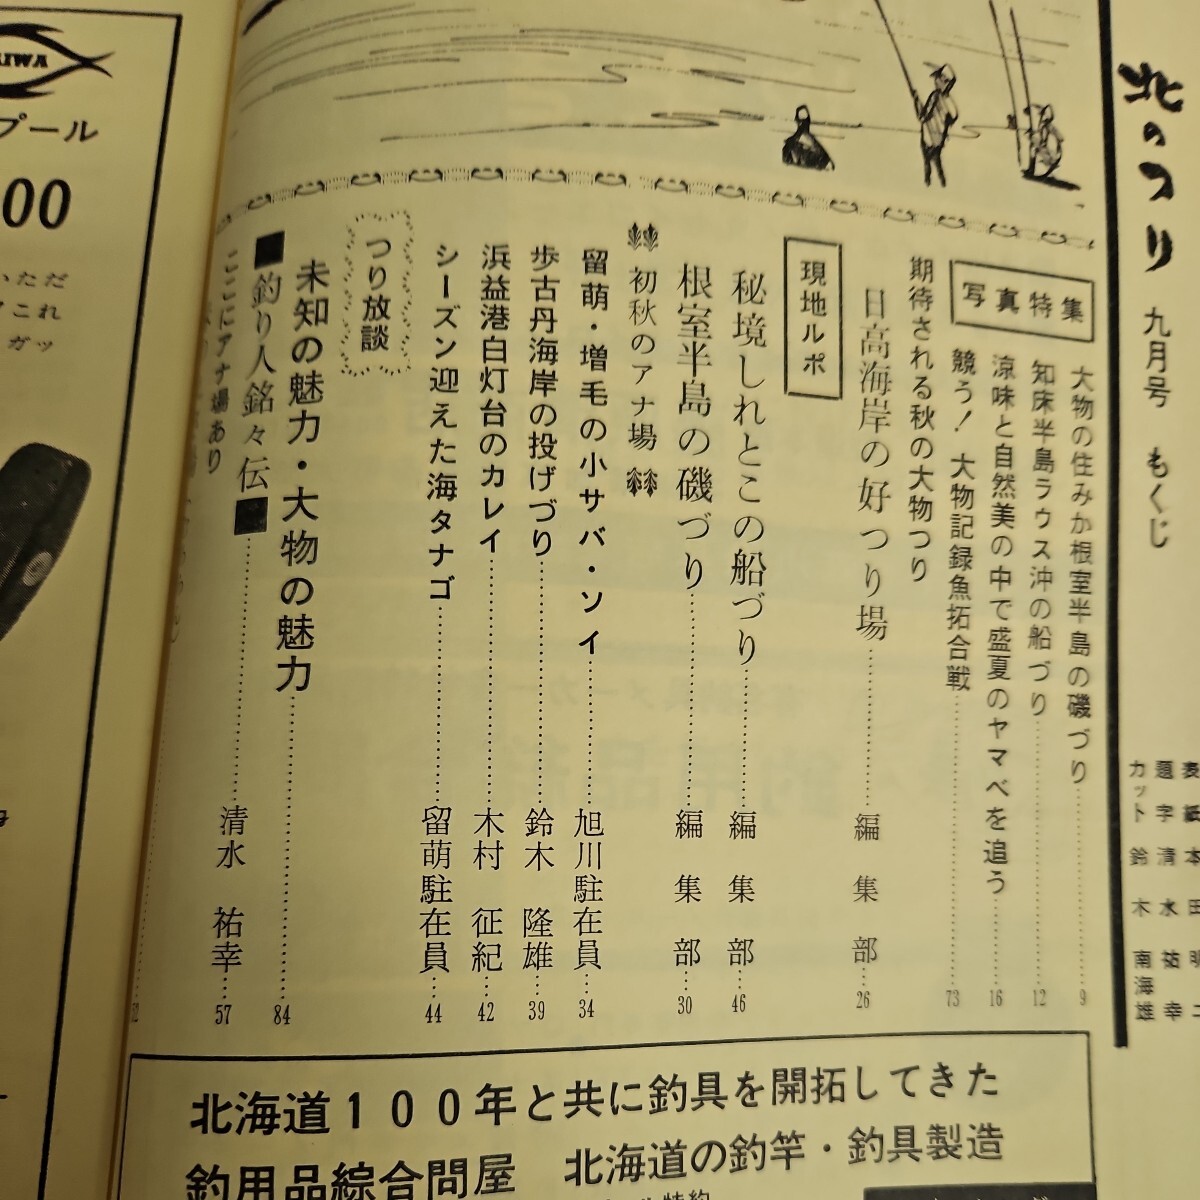 北のつり 九月号 もくじ
表紙 本田明二
題字 清水祐幸
カット 鈴木南海雄
写真特集
大物の住みか根室半島の磯づり……9
知床半島ラウス沖の船づり……12
涼味と自然美の中で盛夏のヤマベを追う……16
競う!大物記録魚拓合戦……73
期待される秋の大物つり
日高海岸の好つり場……編集部……26
現地ルポ
秘境しれとこの船づり……編集部……46
根室半島の磯づり……編集部……30
初秋のアナ場
留萌・増毛の小サバ・ソイ……旭川駐在員……34
歩古丹海岸の投げづり……鈴木 隆雄……39
浜益港白灯台のカレイ……木村 征紀……42
シーズン迎えた海タナゴ……留萌駐在員……44
つり放談
未知の魅力・大物の魅力……84
■釣り人銘々伝■……清水 祐幸……57
ここにアナ場あり
プール
00
いただ
これ
ガッ
北海道100年と共に釣具を開拓してきた
釣用品綜合問屋 北海道の釣竿・釣具製造